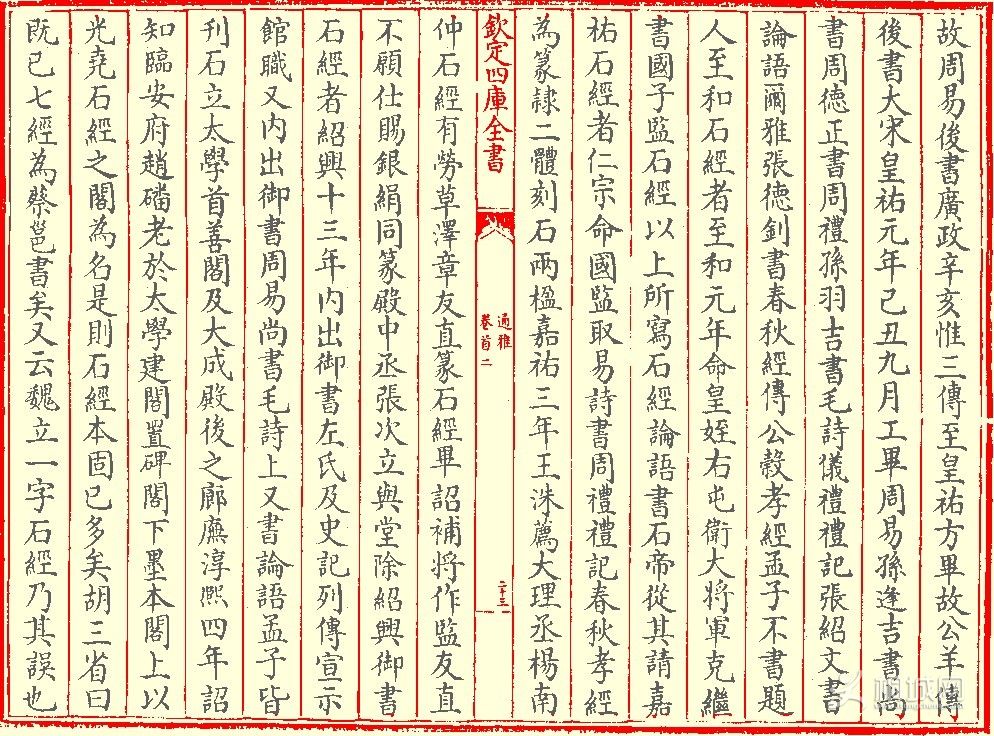 故周易後書廣政辛亥惟三傳至皇祐方畢故公羊傳
後書大宋皇祐元年己丑九月工畢周易孫逢吉書尚
書周德正書周禮孫羽吉書毛詩儀禮禮記張紹文書
論語爾雅張德釗書春秋經傳公穀孝經孟子不書題
人至和石經者至和元年命皇姪右屯衛大將軍克繼
書國子監石經以上所寫石經論語書石帝從其請嘉
祐石經者仁宗命國監取易詩書周禮禮記春秋孝經
為篆隸二體刻石兩楹嘉祐三年王洙薦大理丞楊南
欽定四庫全書
通雅
卷首二
二十三
仲石經有勞草澤章友直篆石經畢詔補將作監友直
不願仕賜銀絹同篆殿中丞張次立與堂除紹興御書
石經者紹興十三年内出御書左氏及史記列傳宣示
館職又内出御書周易尚書毛詩上又書論語孟子皆
刋石立太學首善閣及大成殿後之廊廡淳熙四年詔
知臨安府趙磻老於太學建閣置碑閣下墨本閣上以
光堯石經之閣為名是則石經本固已多矣胡三省曰
既已七經為蔡邕書矣又云魏立一字石經乃其誤也